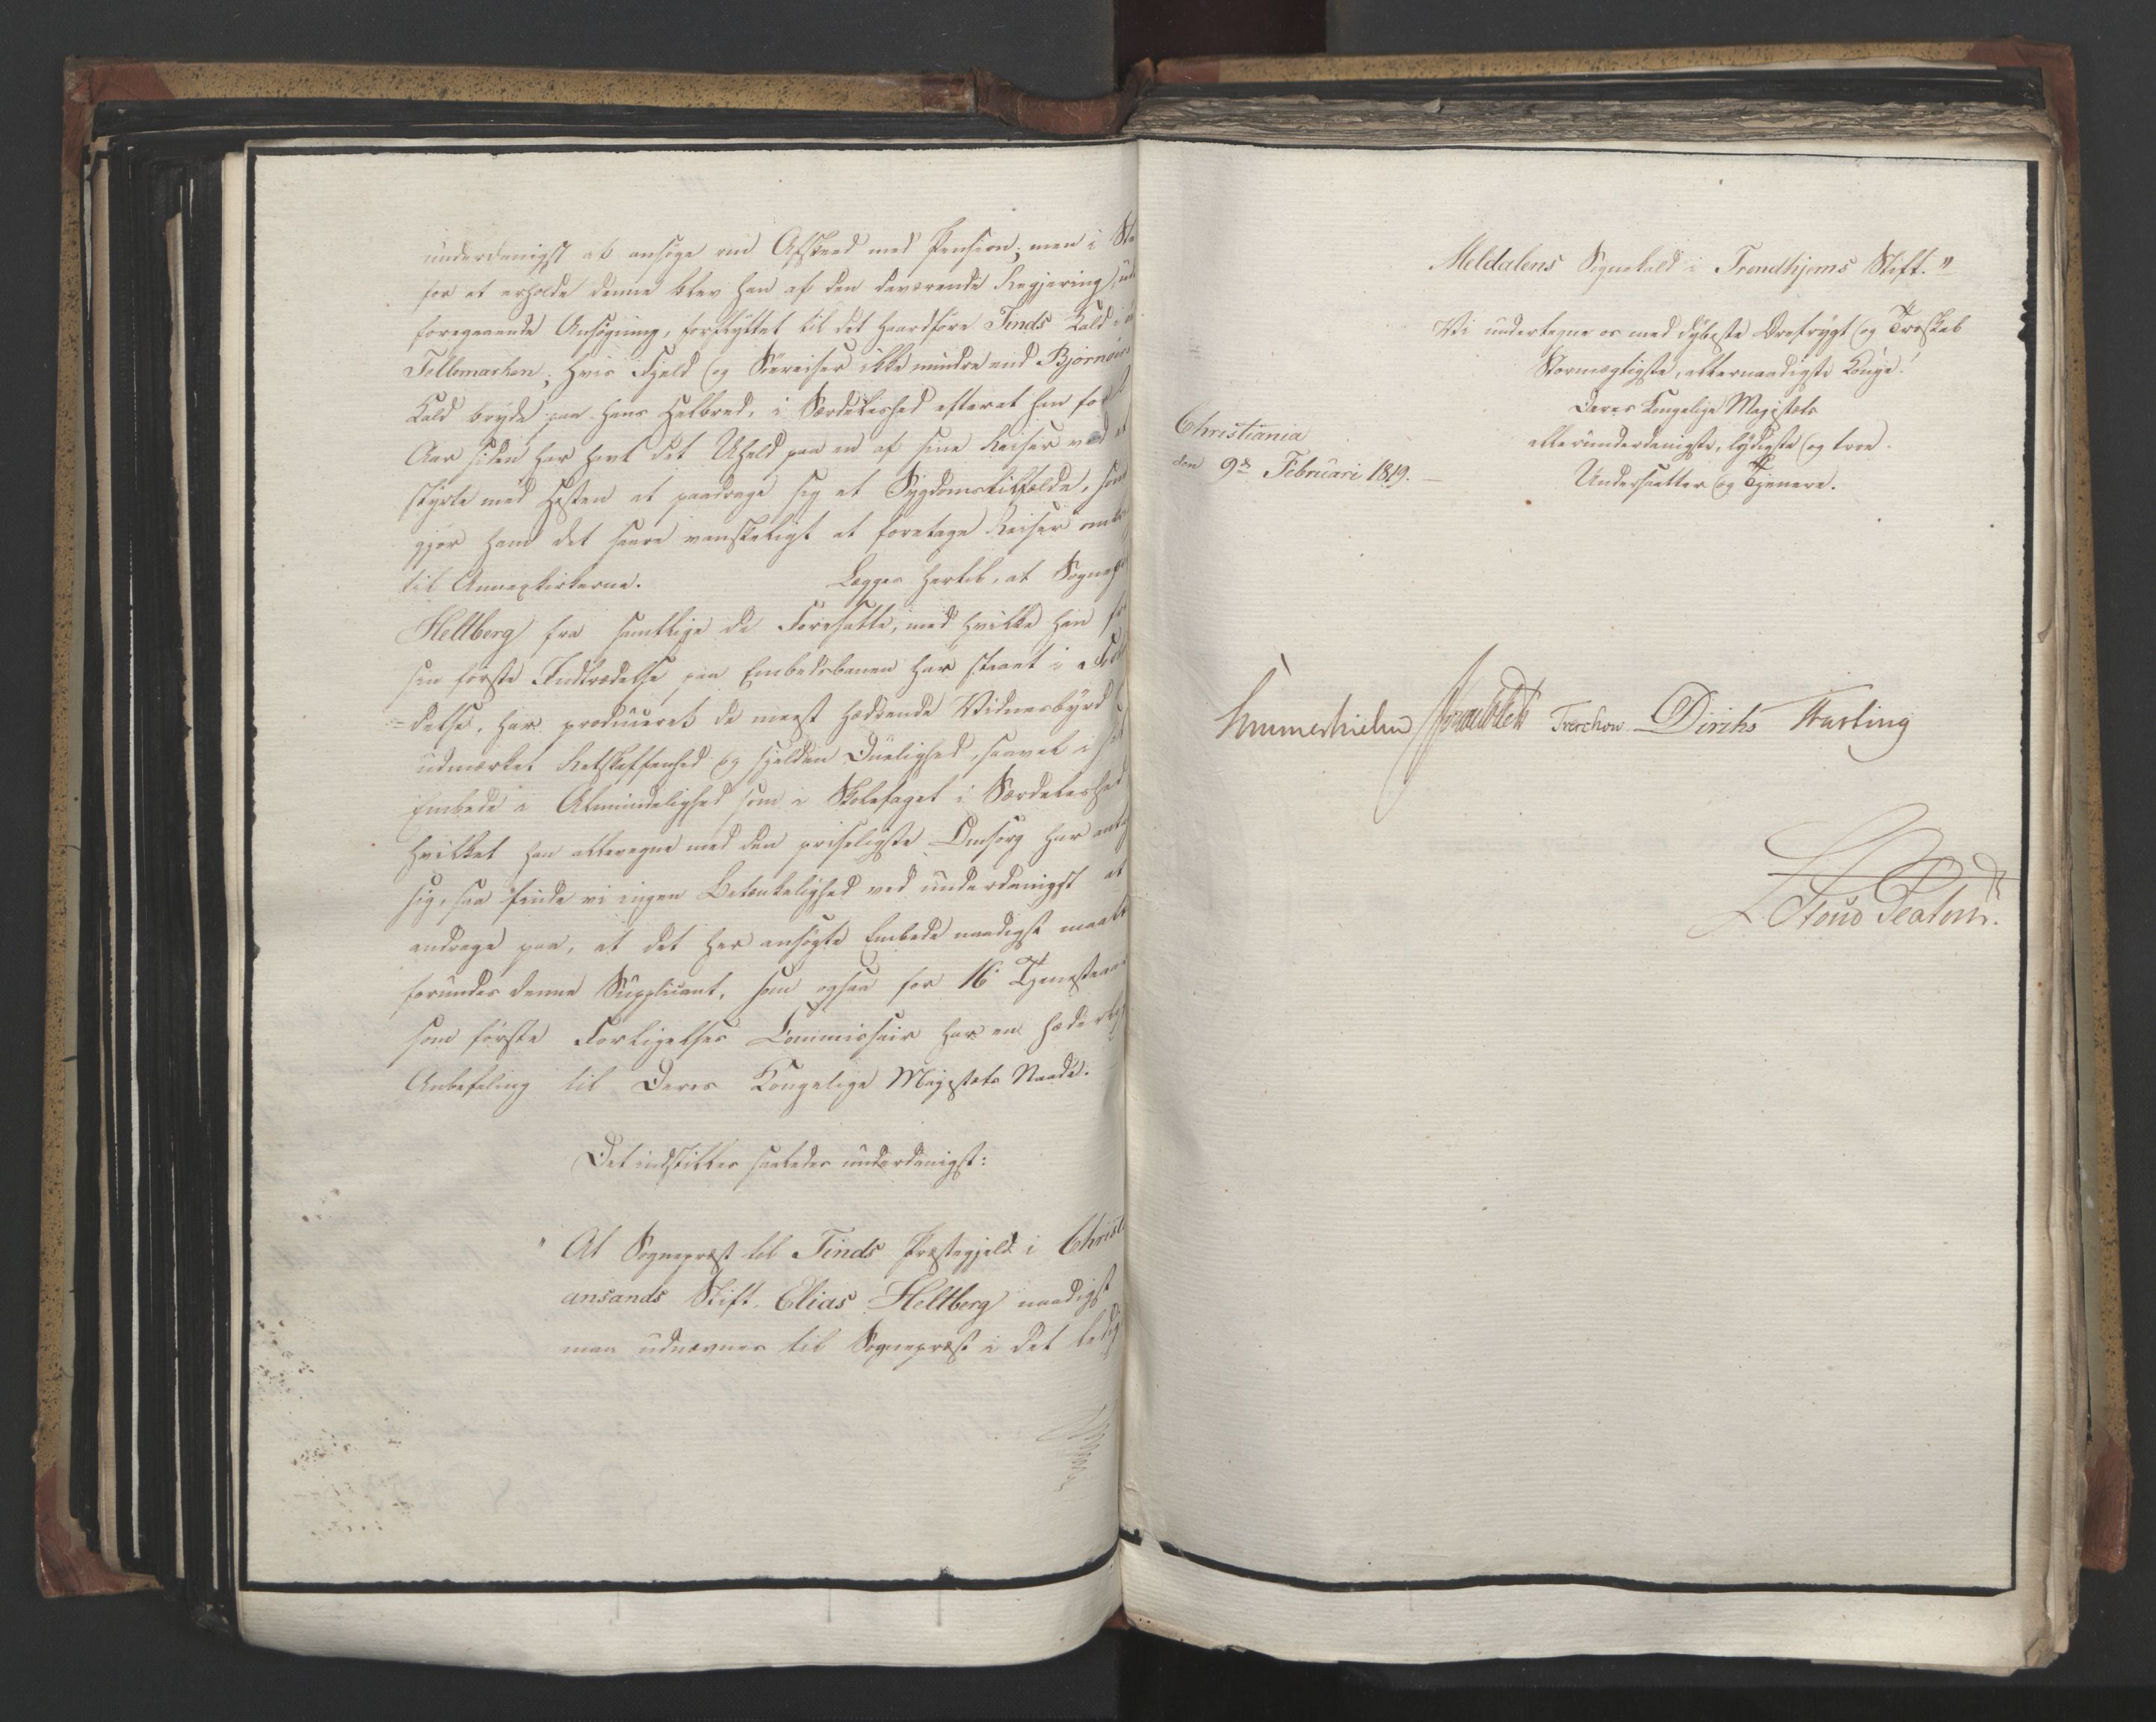 underdanigst at ansøge om Afskeed med Pension; men i
for at erholde denne blev han af den daværende Regjering,
foregaaende Ansøgning, forflyttet til det haardføre Tinds Kald i
Tellemarken, hvis Fjeld og Søereiser ikke mindre end Bjørnøers
Kald bryde paa hans Helbred, i Særdeleshed efterat han for
Aar siden har havt det Uheld paa en af sine Reiser ved at
styrte med Hesten at paadrage sig et Sygdomstilfælde, som
gjør ham det saare vanskeligt at foretage Reiser
til Annexkirkerne. Lægges hertil, at
Heltberg fra samtlige de Foresatte, med hvilke han
sin første Indtrædelse paa Embedsbanen har staaet i
=delse, har produceret de meest hædrende Vidnesbyrd
udmærket Retskaffenhed og sjelden Duelighed, saavel i
Embede i Almindelighed som i Skolefaget i Særdeleshed
hvilket han allevegne med den priseligste Omsorg har
sig, saa finde vi ingen Betænkelighed ved underdanigst at
andrage paa, at det her ansøgte Embede naadigst maatte
forundes denne Supplicant, som ogsaa for 16 Tjenesteaar
som første Forligelses Commissair har en hæderlig
Anbefaling til Deres Kongelige Majestæts Naade.
Det indstilles saaledes underdanigst:
" At Sognepræst til Tinds Præstegjeld i Christi
ansands Stift, Elias Heltberg naadigst
maa udnævnes til Sognepræst i det
Meldalens Sognekald i Trondhjems Stift."
Vi undertegne os med dybeste Ærefrygt og Troskab
Stormægtigste, allernaadigste Konge!
Deres Kongelige Majestæts
allerunderdanigste, lydigste og troe
Undersaatter og Tjenere.
Christiania
den 9de Februari 1819.
Sommerhielm Treschow Diriks Fasting